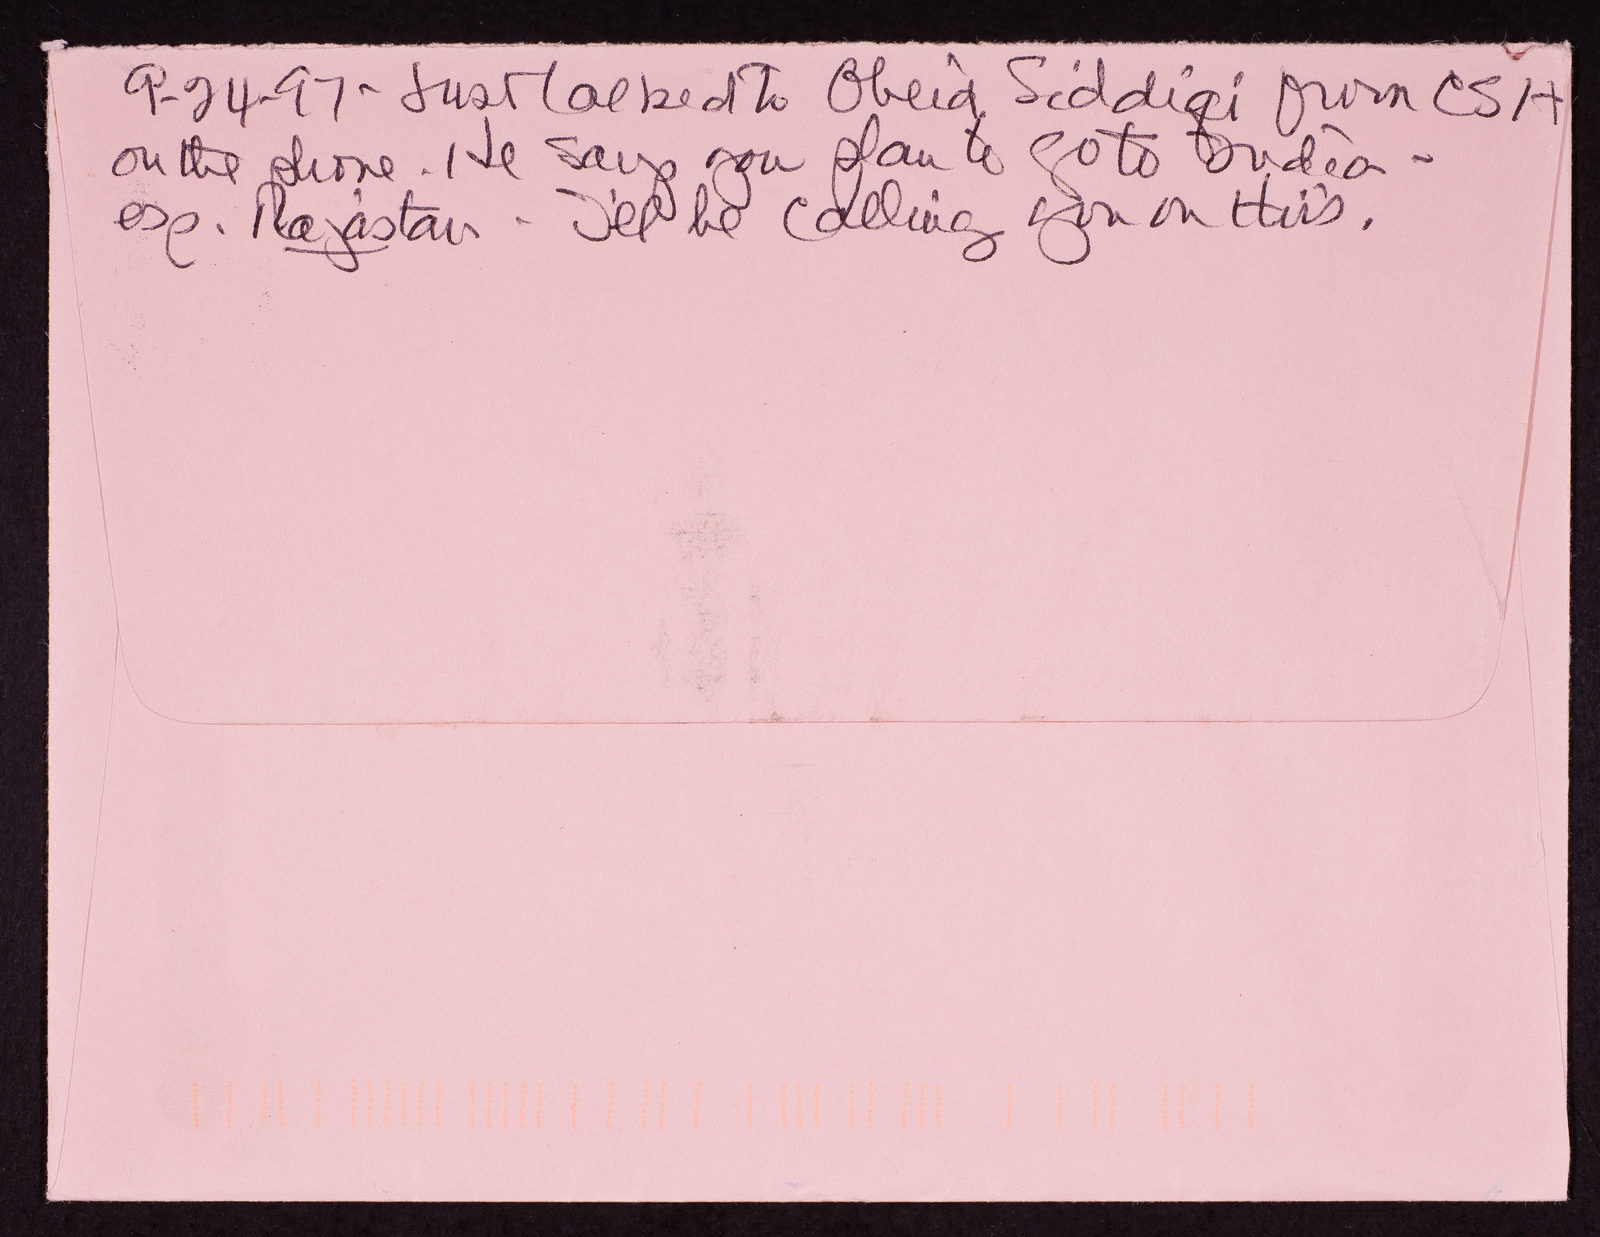 9-24-97 - Just talked to Obeid Siddiqi from CSH
on the phone. He says you plan to go to India -
esp. Rajastan - I'll be calling you on this.